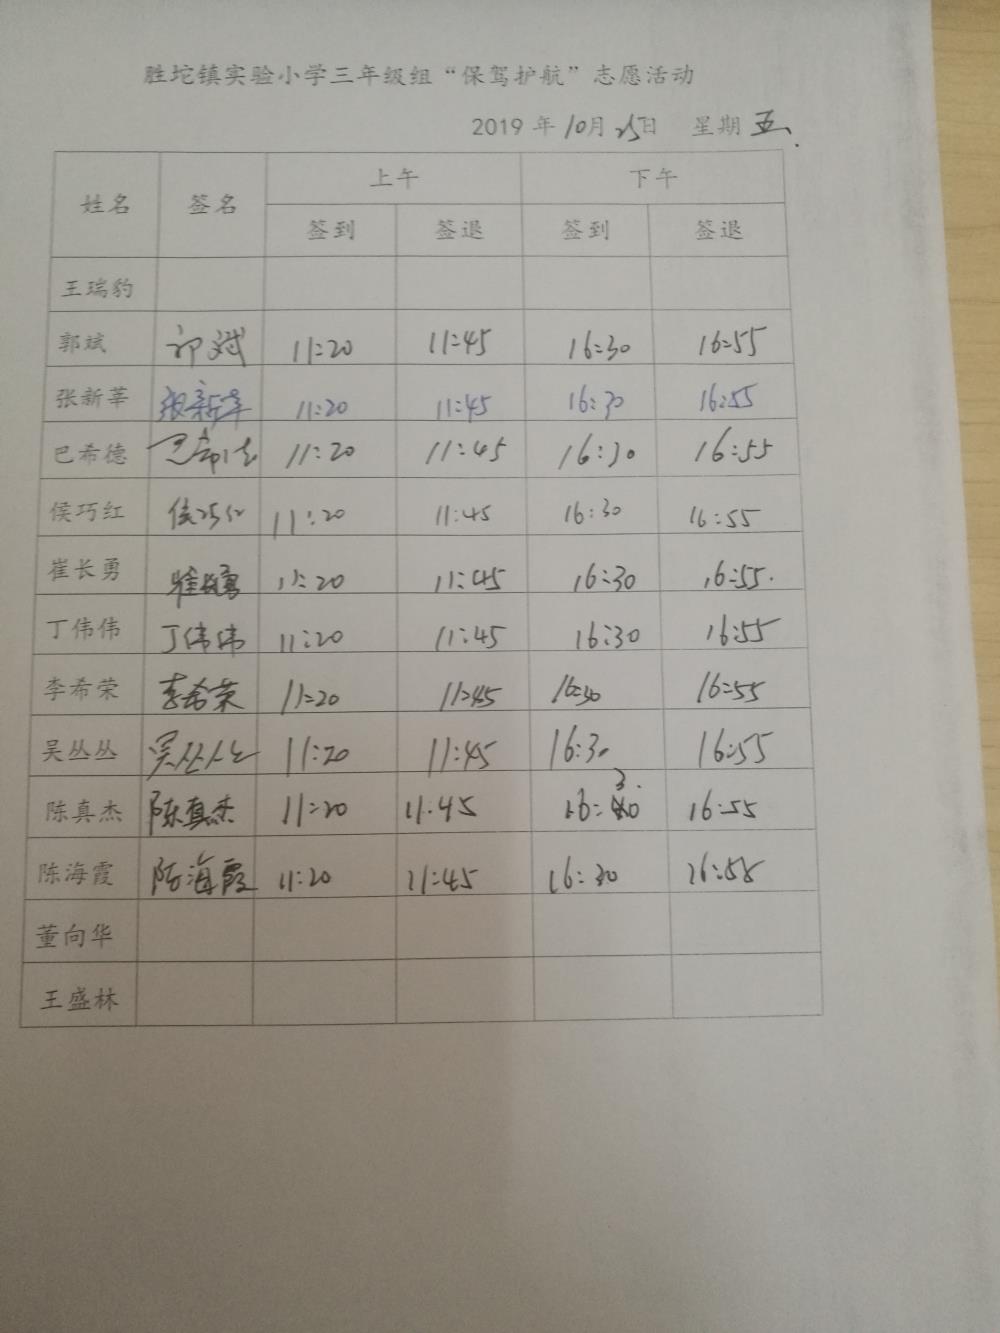 胜坨镇实验小学三年级组“保驾护航”志愿活动
2019 年 10月 25日 星期 五
姓名 签名 上午 下午
签到 签退 签到 签退
王瑞豹
郭斌 郭斌 11:20 11:45 16:30 16:55
张新莘 张新莘 11:20 11:45 16:30 16:55
巴希德 巴希德 11:20 11:45 16:30 16:55
侯巧红 侯巧红 11:20 11:45 16:30 16:55
崔长勇 崔长勇 11:20 11:45 16:30 16:55.
丁伟伟 丁伟伟 11:20 11:45 16:30 16:55
李希荣 李希荣 11:20 11:45 16:30 16:55
吴丛丛 吴丛丛 11:20 11:45 16:30 16:55
陈真杰 陈真杰 11:20 11:45 16:30 16:55
陈海霞 陈海霞 11:20 11:45 16:30 16:55
董向华
王盛林